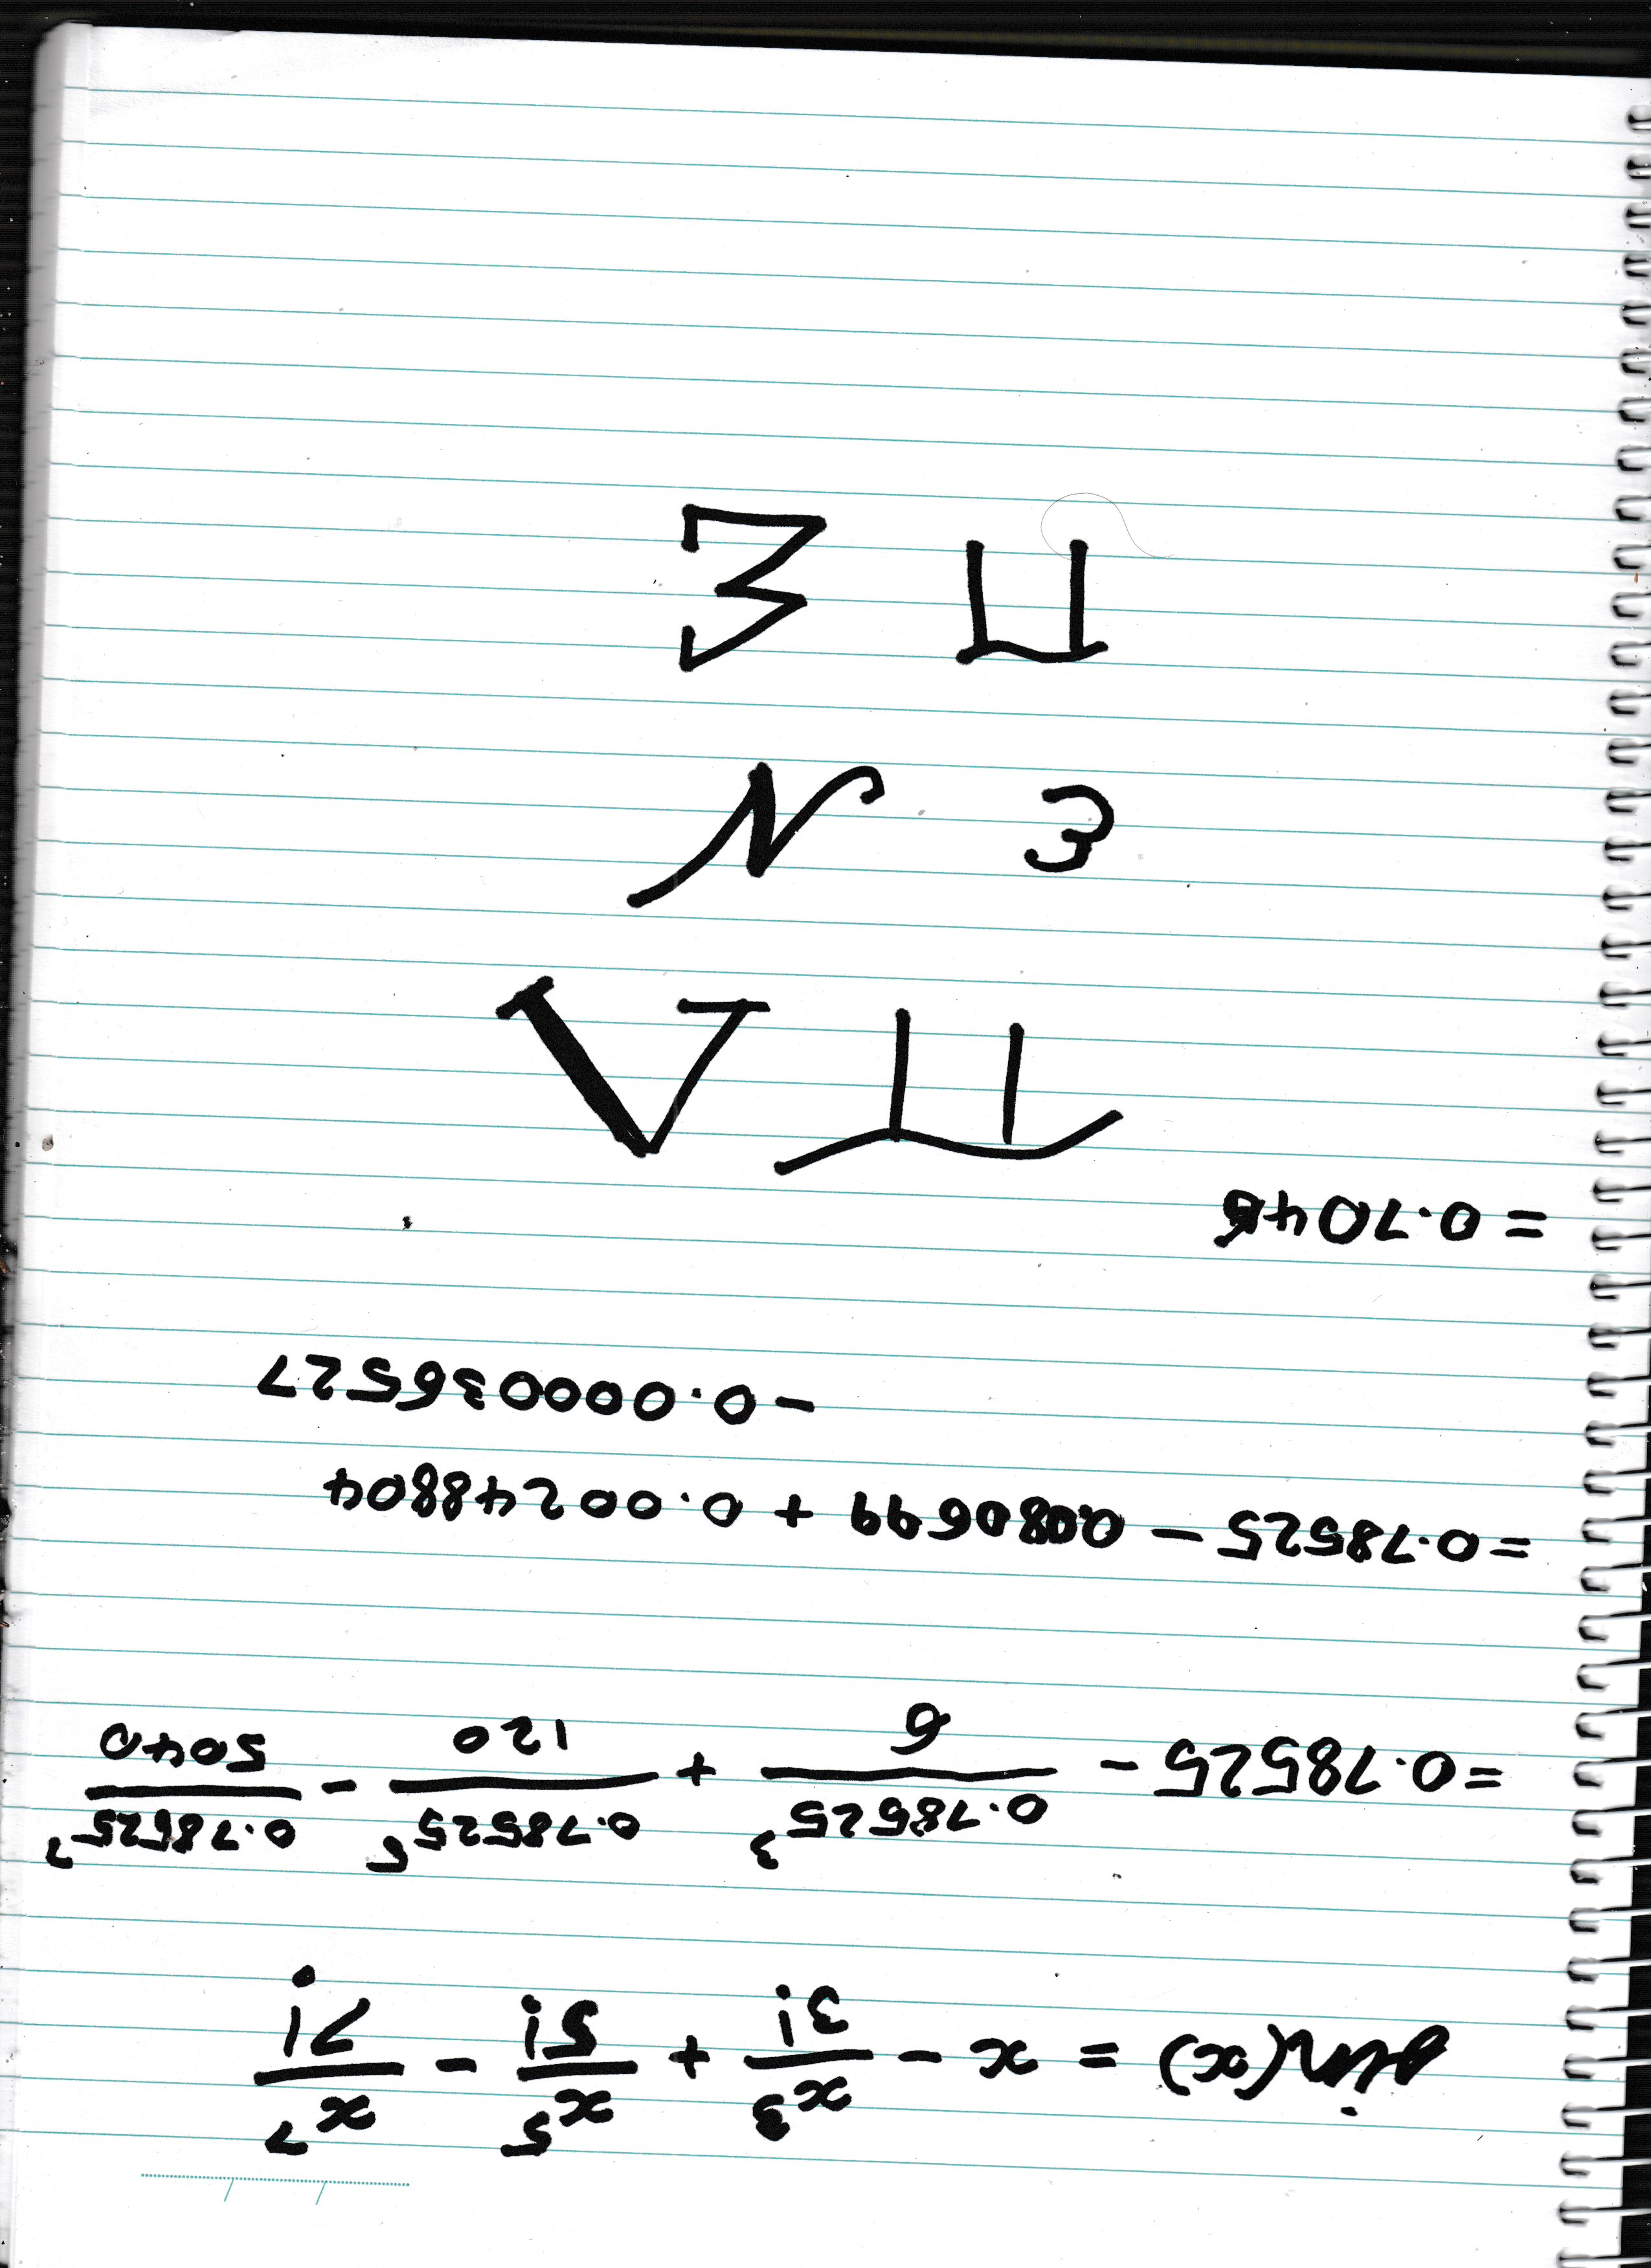 sin(x) = x - x³/3! + x⁵/5! - x⁷/7!
=0.78525 - 0.78525³/6 + 0.78525⁵/120 - 0.78525⁷/5040
=0.78525 - 0.080699 + 0.00248804
-0.000036527
= 0.7046
Π Λ
ε N
Π Σ